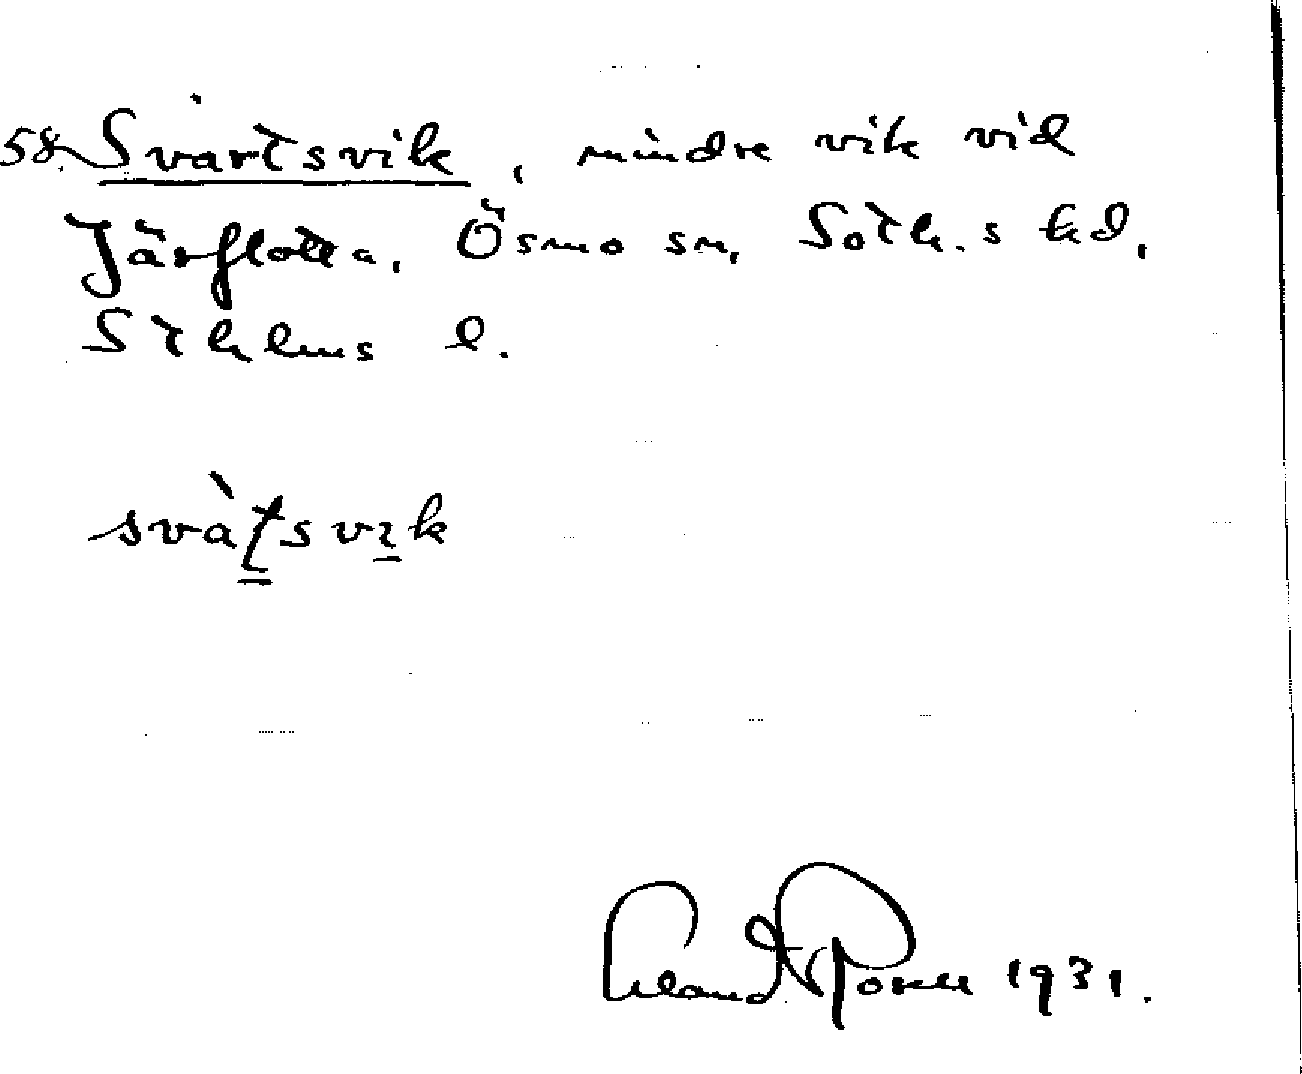 58. Svartsvik, mindre vik vid
Järflotta, Ösmo sn, Soth.s hd,
Sthlms l.
svàʈsvɪk
Erland Rosell 1931.